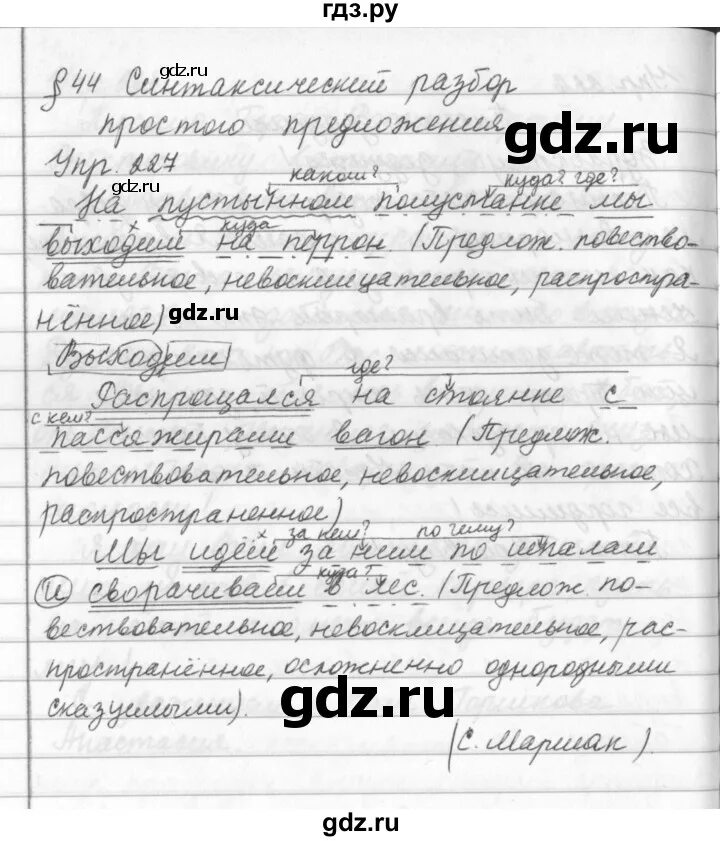 гдз.ру
§ 44 Синтаксический разбор
gdz.ru
простого предложения
Упр. 227
gdz.ru
каком? куда? где?
На пустынном полустанке мы
куда
выходим на перрон (Предлож. повество-
вательное, невосклицательное, распростра-
нённое)
gdz.ru
Выходим
где?
Распрощался на стоянке с
с кем?
пассажирами вагон (Предлож.
повествовательное, невосклицательное,
распространенное)
за кем? по чему?
Мы идём за ним по шпалам
куда?
и сворачиваем в лес. (Предлож. по-
вествовательное, невосклицательное, рас-
пространённое, осложненно однородными
сказуемыми).
gdz.ru
(С. Маршак).
gdz.ru